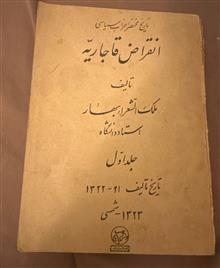 تاریخ مختصر احزاب سیاسی
انقراض قاجاریه
تألیف
ملک الشعراء بهار
استاد دانشگاه
جلد اول
تاریخ تألیف ۲۱-۱۳۲۲
۱۳۲۳- شمسی